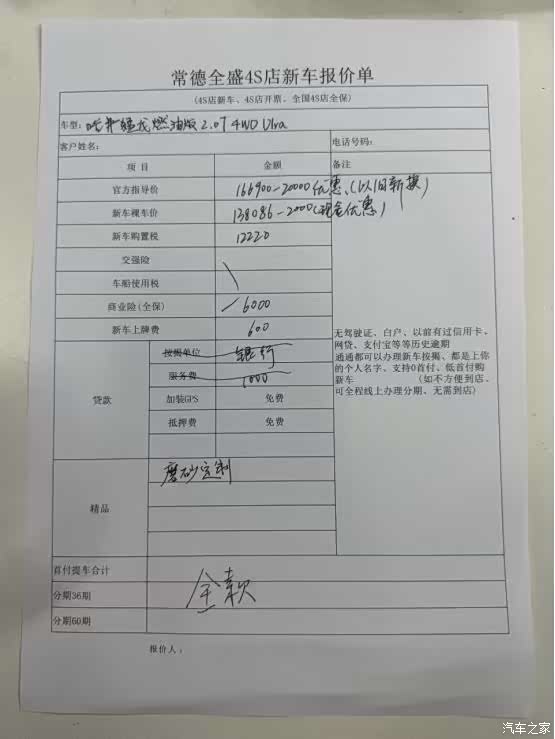 常德全盛4S店新车报价单
(4S店新车、4S店开票、全国4S店全保)
车型: 哈弗猛龙燃油版 2.0T 4WD Ulra
客户姓名: 电话号码:
项 目 金额 备注
官方指导价 166900-20000优惠、(以旧新换)
新车裸车价 138086-2000(现金优惠)
新车购置税 12220
交强险
车船使用税
商业险(全保) 6000
新车上牌费 600
无驾驶证、白户、以前有过信用卡、
网贷、支付宝等等历史逾期
通通都可以办理新车按揭、都是上你
的个人名字、支持0首付、低首付购
新车 (如不方便到店、
可全程线上办理分期、无需到店)
贷款
按揭单位 银行
服务费 1000
加装GPS 免费
抵押费 免费
精品
磨砂定制
首付提车合计
分期36期 全款
分期60期
报价人:
汽车之家